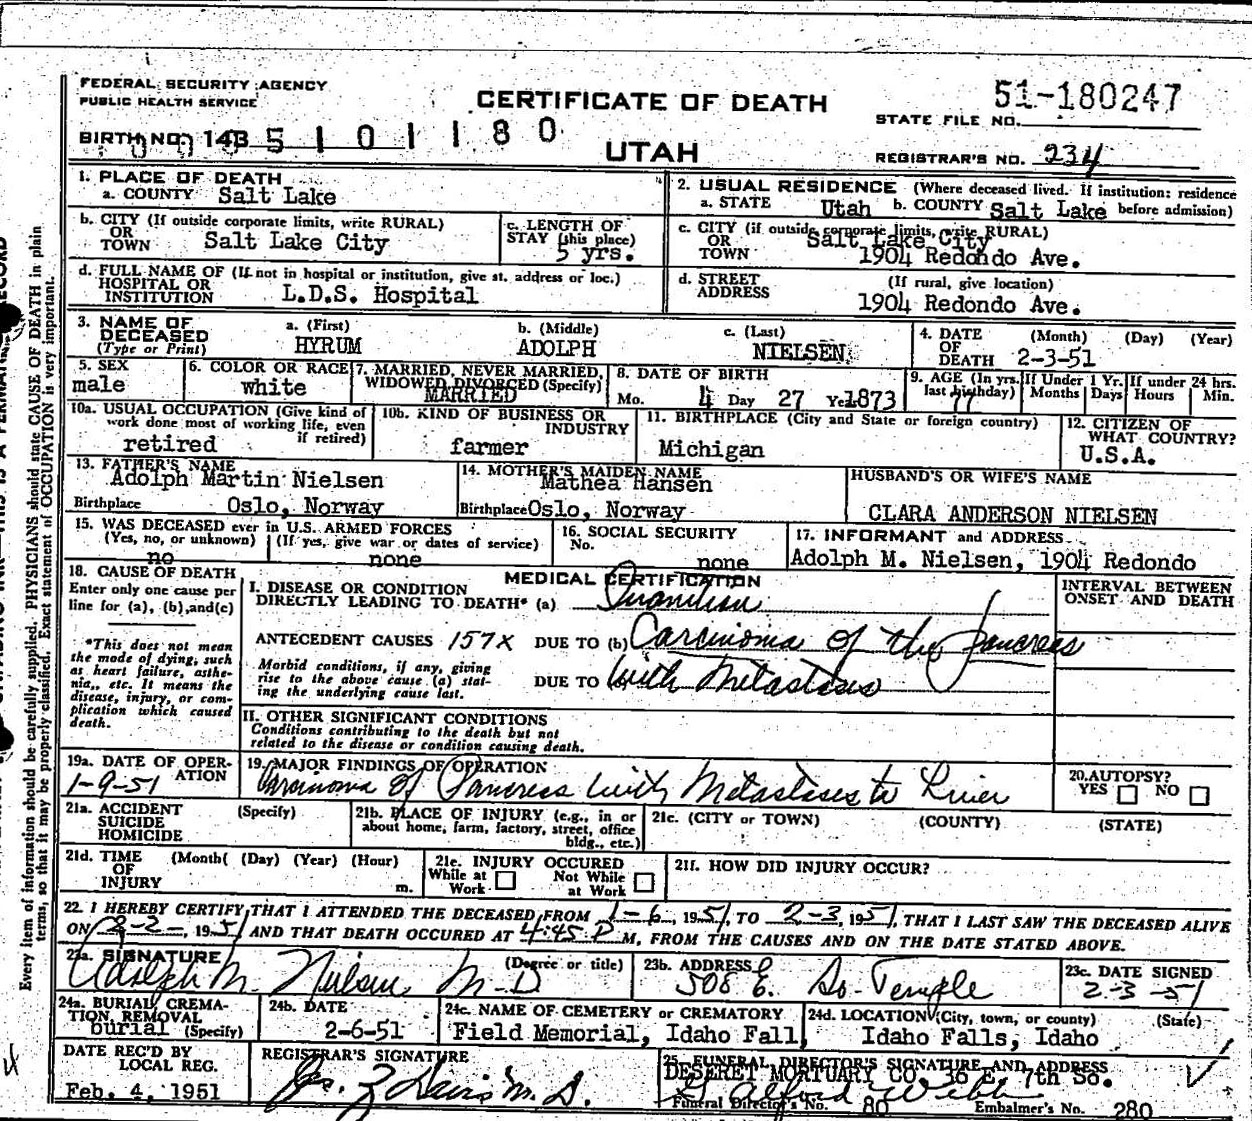 FEDERAL SECURITY AGENCY
PUBLIC HEALTH SERVICE
CERTIFICATE OF DEATH
51-180247
STATE FILE NO.
BIRTH NO. 143 5 1 0 1 1 8 0
UTAH
REGISTRAR'S NO. 234
1. PLACE OF DEATH
a. COUNTY Salt Lake
2. USUAL RESIDENCE (Where deceased lived. If institution: residence
a. STATE Utah b. COUNTY Salt Lake before admission)
b. CITY (If outside corporate limits, write RURAL)
OR
TOWN Salt Lake City
c. LENGTH OF
STAY (this place)
5 yrs.
c. CITY (if outside corporate limits, write RURAL)
OR Salt Lake City
TOWN 1904 Redondo Ave.
d. FULL NAME OF (If not in hospital or institution, give st. address or loc.)
HOSPITAL OR
INSTITUTION L.D.S. Hospital
d. STREET (If rural, give location)
ADDRESS 1904 Redondo Ave.
3. NAME OF
DECEASED
(Type or Print)
a. (First)
HYRUM
b. (Middle)
ADOLPH
c. (Last)
NIELSEN
4. DATE (Month) (Day) (Year)
OF
DEATH 2-3-51
5. SEX
male
6. COLOR OR RACE
white
7. MARRIED, NEVER MARRIED,
WIDOWED DIVORCED (Specify)
MARRIED
8. DATE OF BIRTH
Mo. 4 Day 27 Yr. 1873
9. AGE (In yrs.
last birthday)
77
If Under 1 Yr.
Months Days
If under 24 hrs.
Hours Min.
10a. USUAL OCCUPATION (Give kind of
work done most of working life, even
if retired)
retired
10b. KIND OF BUSINESS OR
INDUSTRY
farmer
11. BIRTHPLACE (City and State or foreign country)
Michigan
12. CITIZEN OF
WHAT COUNTRY?
U.S.A.
13. FATHER'S NAME
Adolph Martin Nielsen
Birthplace Oslo, Norway
14. MOTHER'S MAIDEN NAME
Mathea Hansen
Birthplace Oslo, Norway
HUSBAND'S OR WIFE'S NAME
CLARA ANDERSON NIELSEN
15. WAS DECEASED ever in U.S. ARMED FORCES
(Yes, no, or unknown) (If yes, give war or dates of service)
no none
16. SOCIAL SECURITY
No. none
17. INFORMANT and ADDRESS
Adolph M. Nielsen, 1904 Redondo
18. CAUSE OF DEATH
Enter only one cause per
line for (a), (b), and (c)
*This does not mean
the mode of dying, such
as heart failure, asthe-
nia, etc. It means the
disease, injury, or com-
plication which caused
death.
MEDICAL CERTIFICATION
I. DISEASE OR CONDITION
DIRECTLY LEADING TO DEATH* (a) Inanition
ANTECEDENT CAUSES 157X DUE TO (b) Carcinoma of the pancreas
Morbid conditions, if any, giving
rise to the above cause (a) stat-
ing the underlying cause last.
DUE TO (c) with Metastases
INTERVAL BETWEEN
ONSET AND DEATH
II. OTHER SIGNIFICANT CONDITIONS
Conditions contributing to the death but not
related to the disease or condition causing death.
19a. DATE OF OPER-
ATION
1-9-51
19. MAJOR FINDINGS OF OPERATION
Carcinoma of Pancreas with Metastases to Liver
20. AUTOPSY?
YES NO
21a. ACCIDENT (Specify)
SUICIDE
HOMICIDE
21b. PLACE OF INJURY (e.g., in or
about home, farm, factory, street, office
bldg., etc.)
21c. (CITY or TOWN) (COUNTY) (STATE)
21d. TIME (Month( (Day) (Year) (Hour)
OF
INJURY m.
21e. INJURY OCCURED
While at Not While
Work at Work
21f. HOW DID INJURY OCCUR?
22. I HEREBY CERTIFY THAT I ATTENDED THE DECEASED FROM 1-6, 1951 TO 2-3, 1951, THAT I LAST SAW THE DECEASED ALIVE
ON 2-2-, 1951 AND THAT DEATH OCCURED AT 4:45 P M, FROM THE CAUSES AND ON THE DATE STATED ABOVE.
23a. SIGNATURE (Degree or title)
Adolph M. Nielsen M.D
23b. ADDRESS
508 E. So. Temple
23c. DATE SIGNED
2-3-51
24a. BURIAL, CREMA-
TION, REMOVAL
burial (Specify)
24b. DATE
2-6-51
24c. NAME OF CEMETERY or CREMATORY
Field Memorial, Idaho Fall,
24d. LOCATION (City, town, or county) (State)
Idaho Falls, Idaho
DATE REC'D BY
LOCAL REG.
Feb. 4, 1951
REGISTRAR'S SIGNATURE
25. FUNERAL DIRECTOR'S SIGNATURE AND ADDRESS
DESERET MORTUARY CO 36 E. 7th So.
Alford Webb
Funeral Director's No. 80 Embalmer's No. 280
Every item of information should be carefully supplied. PHYSICIANS should state CAUSE OF DEATH in plain
terms, so that it may be properly classified. Exact statement of OCCUPATION is very important.